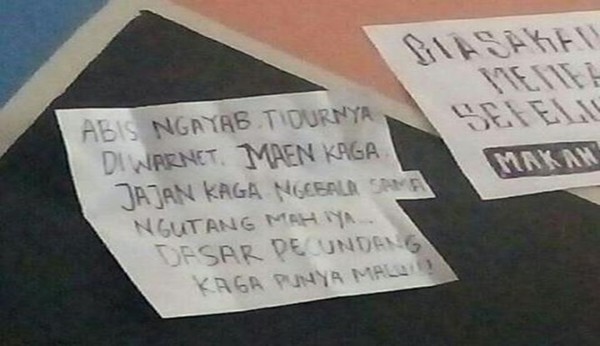 ABIS NGAYAB. TIDURNYA
DIWARNET. MAEN KAGA.
JAJAN KAGA. NGEBALA SAMA
NGUTANG MAH IYA...
DASAR PECUNDANG
KAGA PUNYA MALU!!!
BIASAKAN
MEMBA
SEBELU
MAKAN